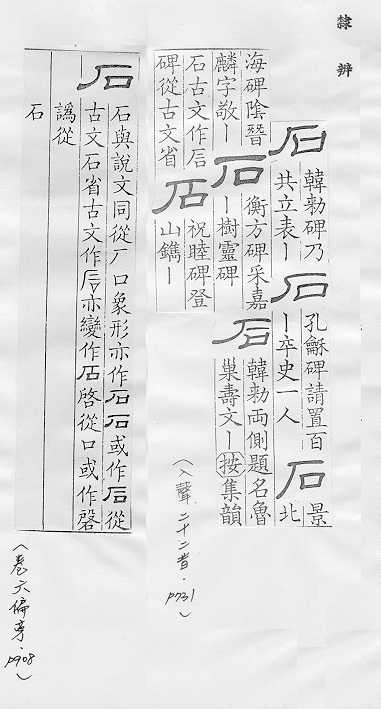 隸辨
石
韓勑碑乃
共立表丨
石
孔龢碑請置百
丨卒史一人
石
景
北
海碑陰晉
麟字敬丨
石
衡方碑采嘉
丨樹靈碑
后
韓勑兩側題名魯
巢壽文丨按集韻
石古文作
碑從古文省
石
祝睦碑登
山鐫丨
(入聲二十二昔.p731)
石
石與說文同從厂口象形亦作石石或作后從
古文石省古文作亦變作啓從口或作
譌從
石
(卷六偏旁.p908)